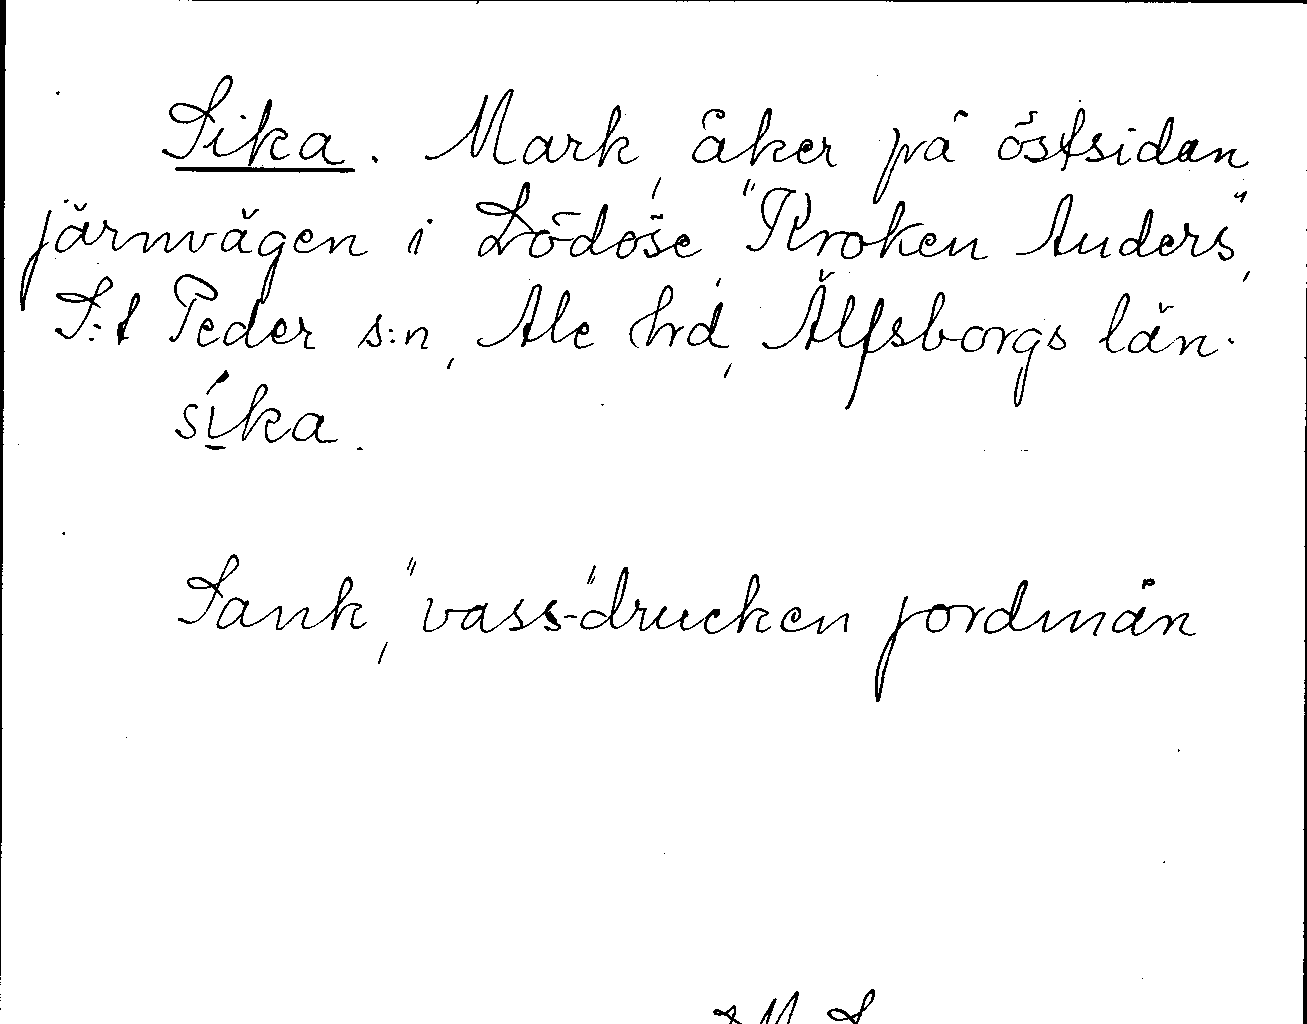 Sika. Mark, åker på östsidan
järnvägen i Lödöse, "Kroken Anders",
S:t Peder s:n, Ale hd, Älfsborgs län.
síka.
Sank, "vass-"drucken jordmån